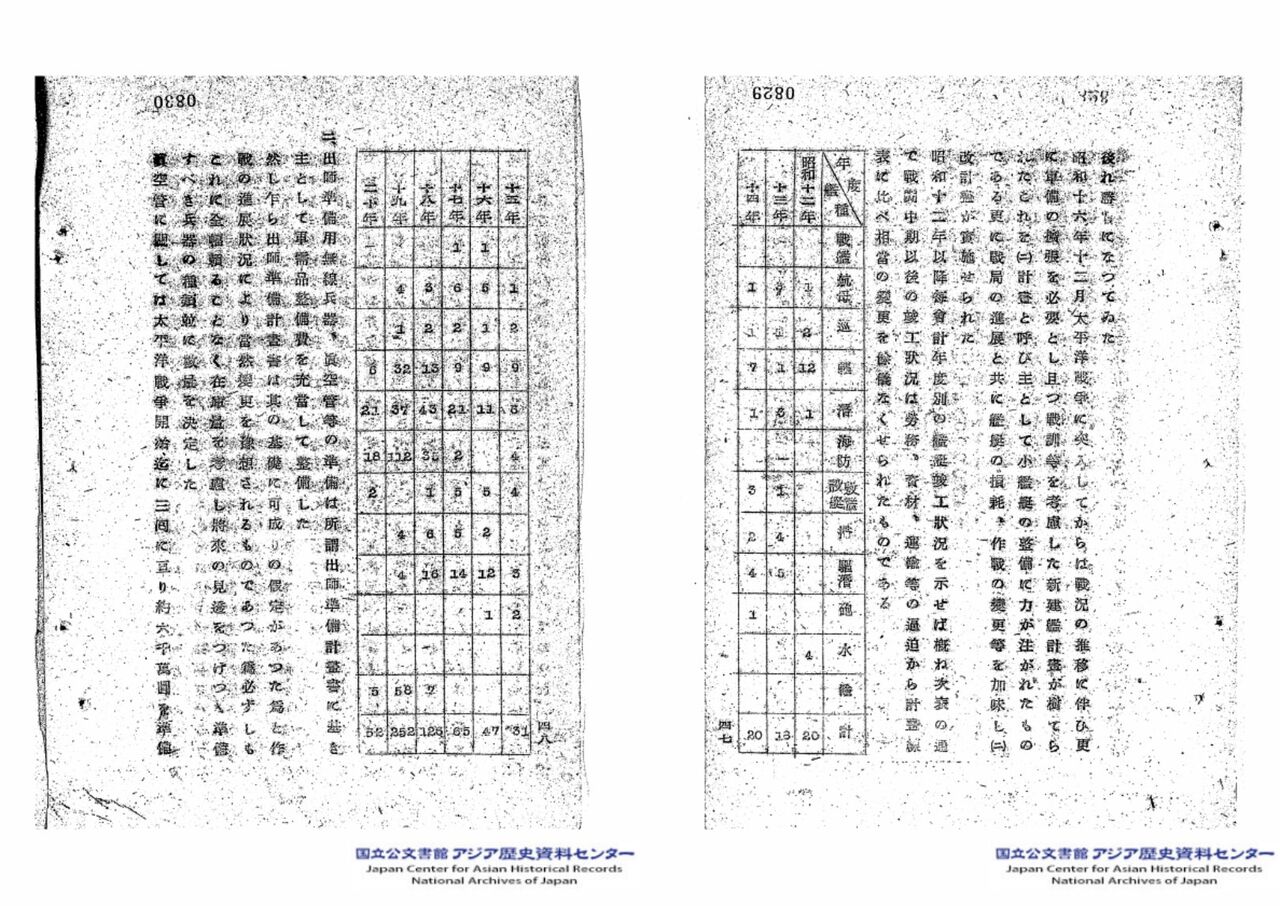 0829
後れ勝ちになつてゐた
昭和十六年十二月太平洋戰爭に突入してからは戰況の推移に伴ひ更
に軍備の擴張を必要とし且つ戰訓等を考慮した新建艦計畫が樹てら
れたこれを㈡計畫と呼び主として小艦艇の整備に力が注がれたもの
である更に戰局の進展と共に艦艇の損耗、作戰の變更等を加味し㈡
改計畫が實施せられた
昭和十二年以降每會計年度別の艦艇竣工狀況を示せば概ね次表の通
で戰爭中期以後の竣工狀況は勞務、資材、運輸等の逼迫から計畫線
表に比べ相當の變更を餘儀なくせられたものである
年度 艦種 戰艦 航母 巡 驅 潛 海防 敷設艦艇 掃 驅潛 砲 水 輸 計
昭和十二年 1 2 12 1 4 20
十三年 1 1 4 5
十四年 1 1 7 1 3 2 4 1 20
四七
国立公文書館 アジア歴史資料センター
Japan Center for Asian Historical Records
National Archives of Japan
0830
四八
十五年 1 2 9 6 4 4 3 2 31
十六年 1 5 1 9 11 5 2 12 1 47
十七年 1 6 2 9 21 2 5 5 14 65
十八年 3 2 13 43 35 1 6 16 7 126
十九年 4 1 32 37 112 4 4 58 252
二十年 6 21 18 2 5 52
二、出師準備用無線兵器、眞空管等の準備は所謂出師準備計畫書に基き
主として軍需品整備費を充當して整備した
然し乍ら出師準備計畫書は其の基礎に可成りの假定があつた爲と作
戰の進展狀況により當然變更を豫想されるものであつた爲必ずしも
これに全幅賴ることなく在庫量を考慮し將來の見透をつけつゝ準備
すべき兵器の種類竝に數量を決定した
眞空管に關しては太平洋戰爭開始迄に三囘に亘り約六千萬圓を準備
国立公文書館 アジア歴史資料センター
Japan Center for Asian Historical Records
National Archives of Japan